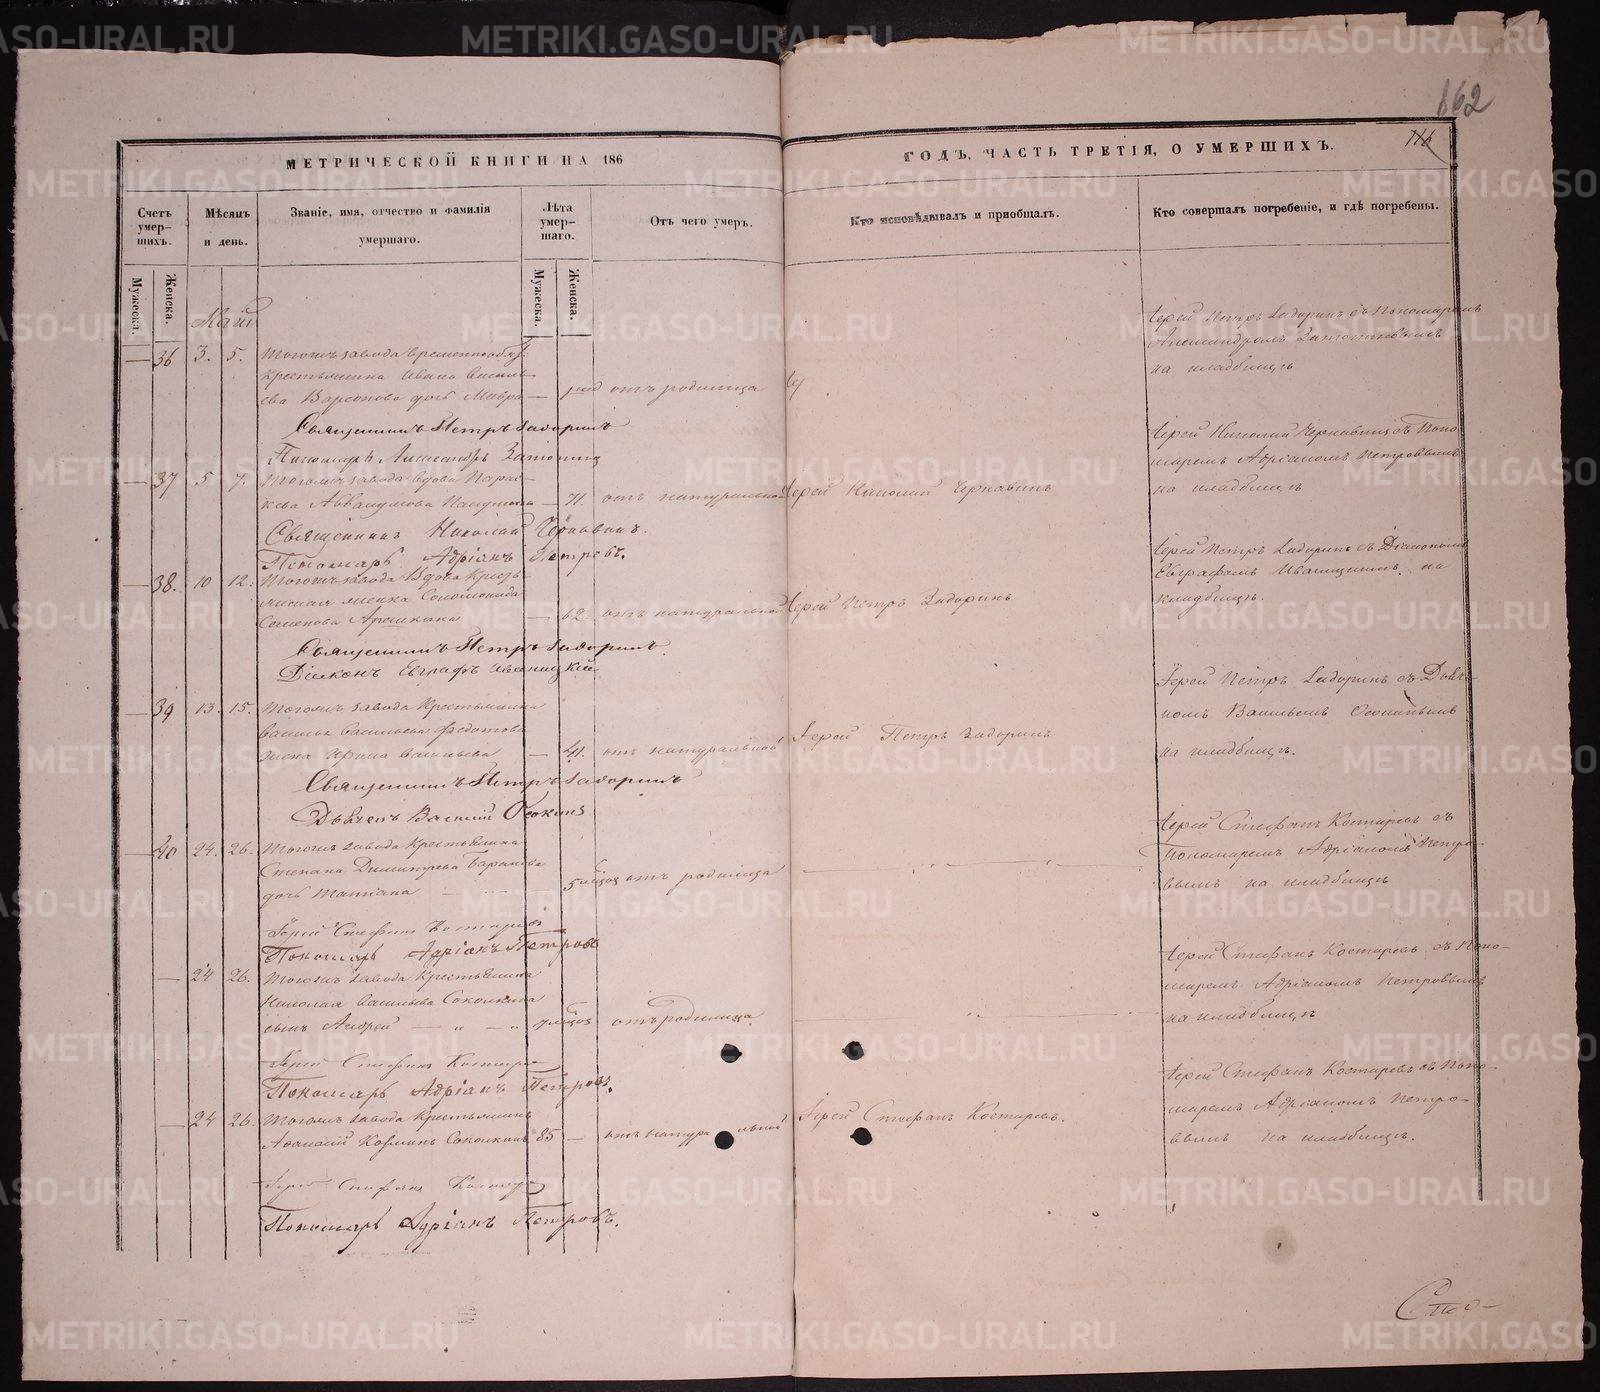 862
МЕТРИЧЕСКОЙ КНИГИ НА 186
ГОДЪ, ЧАСТЬ ТРЕТІЯ, О УМЕРШИХЪ.
Счетъ умершихъ.
Мѣсяцъ и день.
Званіе, имя, отчество и фамилія умершаго.
Лѣта умершаго.
Отъ чего умеръ.
Кто исповѣдывалъ и приобщалъ.
Кто совершалъ погребеніе, и гдѣ погребены.
Мужеска.
Женска.
Мужеска.
Женска.
Маій
Іерей Петръ Задоринъ съ Пономаремъ
Александромъ
на кладбищѣ
— 36 3. 5. Тогожъ завода временнообяз.
крестьянина Ивана Василь-
ева Варсонова дочь Мавра — отъ родимца
Священникъ Петръ Задоринъ
Пономарь Александръ
Іерей Николай Чернавинъ съ Поно-
маремъ Адріаномъ Петровымъ
на кладбищѣ
— 37 5 7. Тогожъ завода вдова Парас-
кева Аввакумова — 71. отъ натуральной Іерей Николай Чернавинъ
Священникъ Николай Чернавинъ.
Пономарь Адріанъ Петровъ.
Іерей Петръ Задоринъ съ Діакономъ
Евграфомъ Иваницкимъ на
кладбищѣ.
— 38. 10 12. Тогожъ завода Вдова
женка Соломонида
Семенова — 62. отъ натуральной Іерей Петръ Задоринъ
Священникъ Петръ Задоринъ.
Діаконъ Евграфъ Иваницкій
Іерей Петръ Задоринъ съ Дьяч-
комъ Васильемъ Осокинымъ
на кладбищѣ.
— 39 13. 15. Тогожъ завода Крестьянина
Василья Васильева Федотова
жена Ирина Васильева — 41. отъ натуральной Іерей Петръ Задоринъ
Священникъ Петръ Задоринъ
Дьячекъ Василій Осокинъ
Іерей Стефанъ Костаревъ съ
Пономаремъ Адріаномъ Петро-
вымъ на кладбищѣ
— 40 24. 26. Тогожъ завода Крестьянина
Степана Димитрева Баранова
дочь Татіана — 5 отъ родимца
Іерей Стефанъ Костаревъ
Пономарь Адріанъ Петровъ
Іерей Стефанъ Костаревъ съ Поно-
маремъ Адріаномъ Петровымъ
на кладбищѣ
— 24 26. Тогожъ завода Крестьянина
Николая Васильева Соколкина
сынъ Андрей — 7 отъ родимца
Іерей Стефанъ Костаревъ
Пономарь Адріанъ Петровъ.
Іерей Стефанъ Костаревъ съ Поно-
маремъ Адріаномъ Петро-
вымъ на кладбищѣ.
— 24 26. Тогожъ завода Крестьянинъ
Афанасій Козминъ Соколкинъ 85 — отъ натуральной Іерей Стефанъ Костаревъ.
Іерей Стефанъ Костаревъ
Пономарь Адріанъ Петровъ.
METRIKI.GASO-URAL.RU